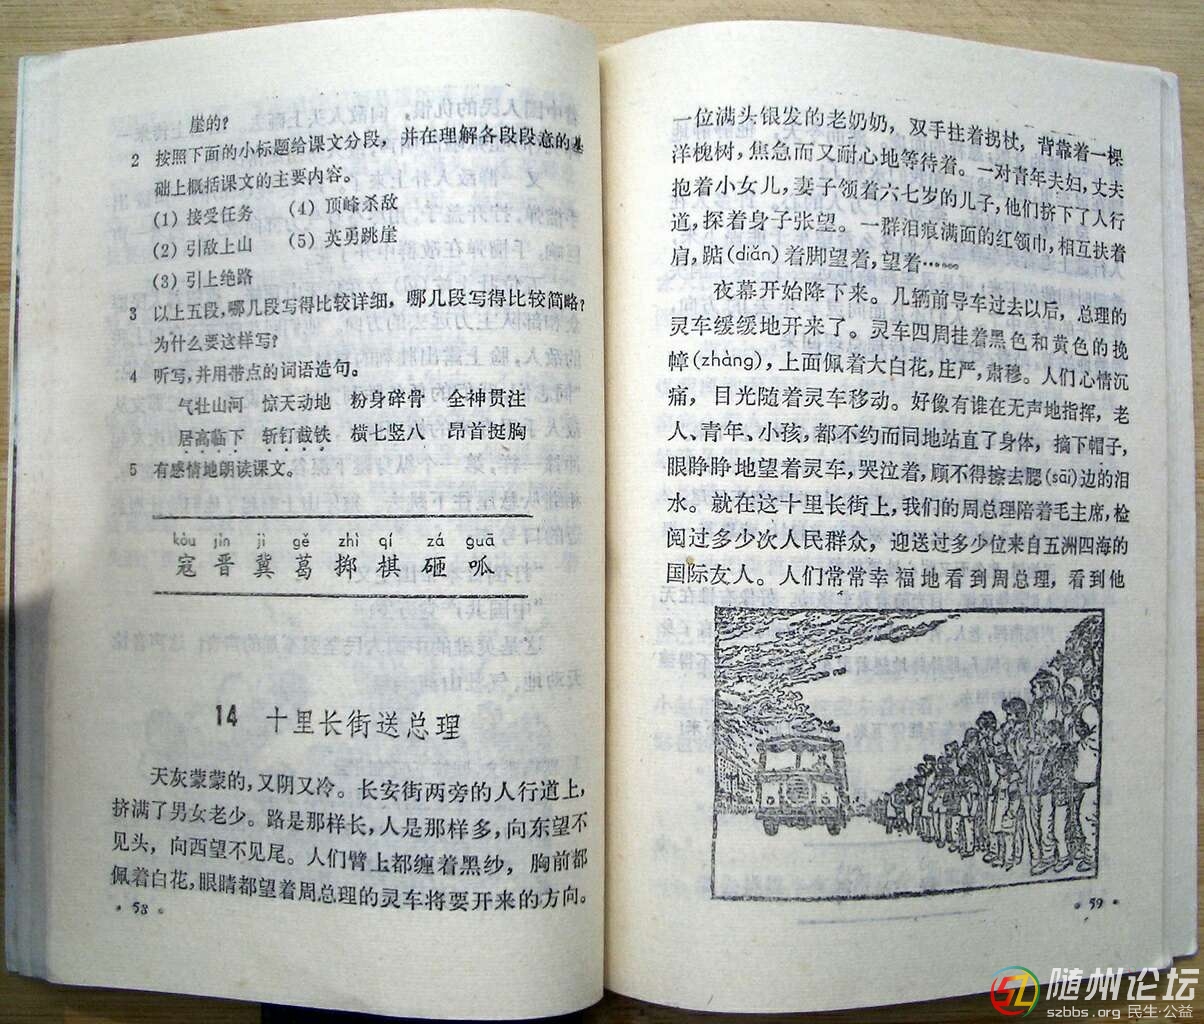 崖的？
2 按照下面的小标题给课文分段，并在理解各段段意的基
础上概括课文的主要内容。
(1) 接受任务 (4) 顶峰杀敌
(2) 引敌上山 (5) 英勇跳崖
(3) 引上绝路
3 以上五段，哪几段写得比较详细，哪几段写得比较简略？
为什么要这样写？
4 听写，并用带点的词语造句。
气壮山河 惊天动地 粉身碎骨 全神贯注
居高临下 斩钉截铁 横七竖八 昂首挺胸
5 有感情地朗读课文。
kòu jìn jì gě zhì qí zá guā
寇 晋 冀 葛 掷 棋 砸 呱
14 十里长街送总理
天灰蒙蒙的，又阴又冷。长安街两旁的人行道上，
挤满了男女老少。路是那样长，人是那样多，向东望不
见头，向西望不见尾。人们臂上都缠着黑纱，胸前都
佩着白花，眼睛都望着周总理的灵车将要开来的方向。
· 58 ·
一位满头银发的老奶奶，双手拄着拐杖，背靠着一棵
洋槐树，焦急而又耐心地等待着。一对青年夫妇，丈夫
抱着小女儿，妻子领着六七岁的儿子，他们挤下了人行
道，探着身子张望。一群泪痕满面的红领巾，相互扶着
肩，踮(diǎn)着脚望着，望着……
夜幕开始降下来。几辆前导车过去以后，总理的
灵车缓缓地开来了。灵车四周挂着黑色和黄色的挽
幛(zhàng)，上面佩着大白花，庄严，肃穆。人们心情沉
痛，目光随着灵车移动。好像有谁在无声地指挥，老
人、青年、小孩，都不约而同地站直了身体，摘下帽子，
眼睁睁地望着灵车，哭泣着，顾不得擦去腮(sāi)边的泪
水。就在这十里长街上，我们的周总理陪着毛主席，检
阅过多少次人民群众，迎送过多少位来自五洲四海的
国际友人。人们常常幸福地看到周总理，看到他
· 59 ·
随州论坛
szbbs.org 民生·公益